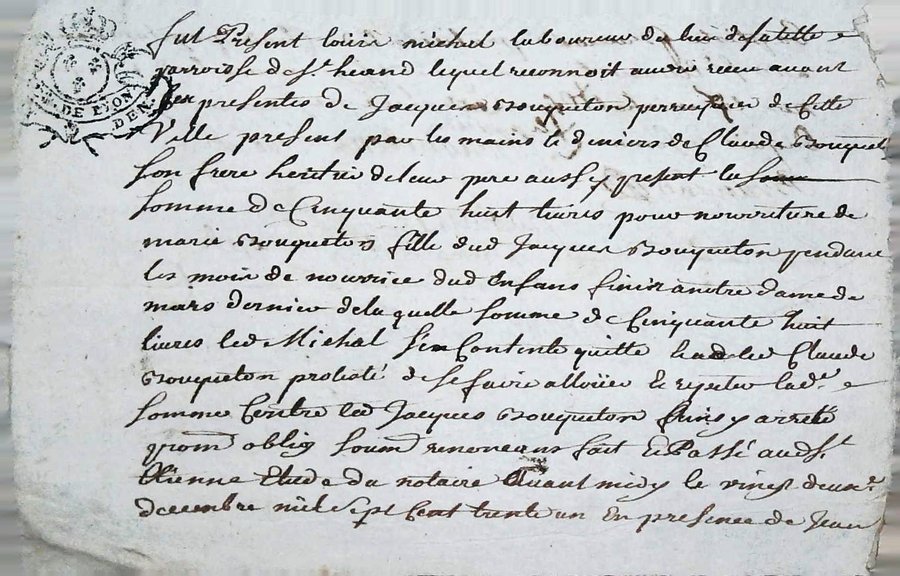 GN. DE LYON
DEN.
fut Present louis michel laboureur du lieu de
parroisse de St. heand lequel reconnoit avoir receu avant
les presentes de Jacques Bouqueton perruquier de Cette
Ville present par les mains et deniers de Claude Bouqueton
son frere heritier de leur pere aussy present la
somme de Cinquante huit livres pour nourriture de
marie Bouqueton fille dud Jacques Bouqueton pendant
les mois de nourrice dud Enfans finis a notre dame de
mars dernier de laquelle somme de Cinquante huit
livres led Michel s'en Contente quitte led Claude
Bouqueton protesté de se faire allouer et la de.
somme Contre led Jacques Bouqueton ainsy arreté
prom oblig soum renoncans fait Et Passé aud St.
Etienne Etude du notaire avant midy le vingt deuxe.
decembre mil sept Cent trente un En presence de Jean